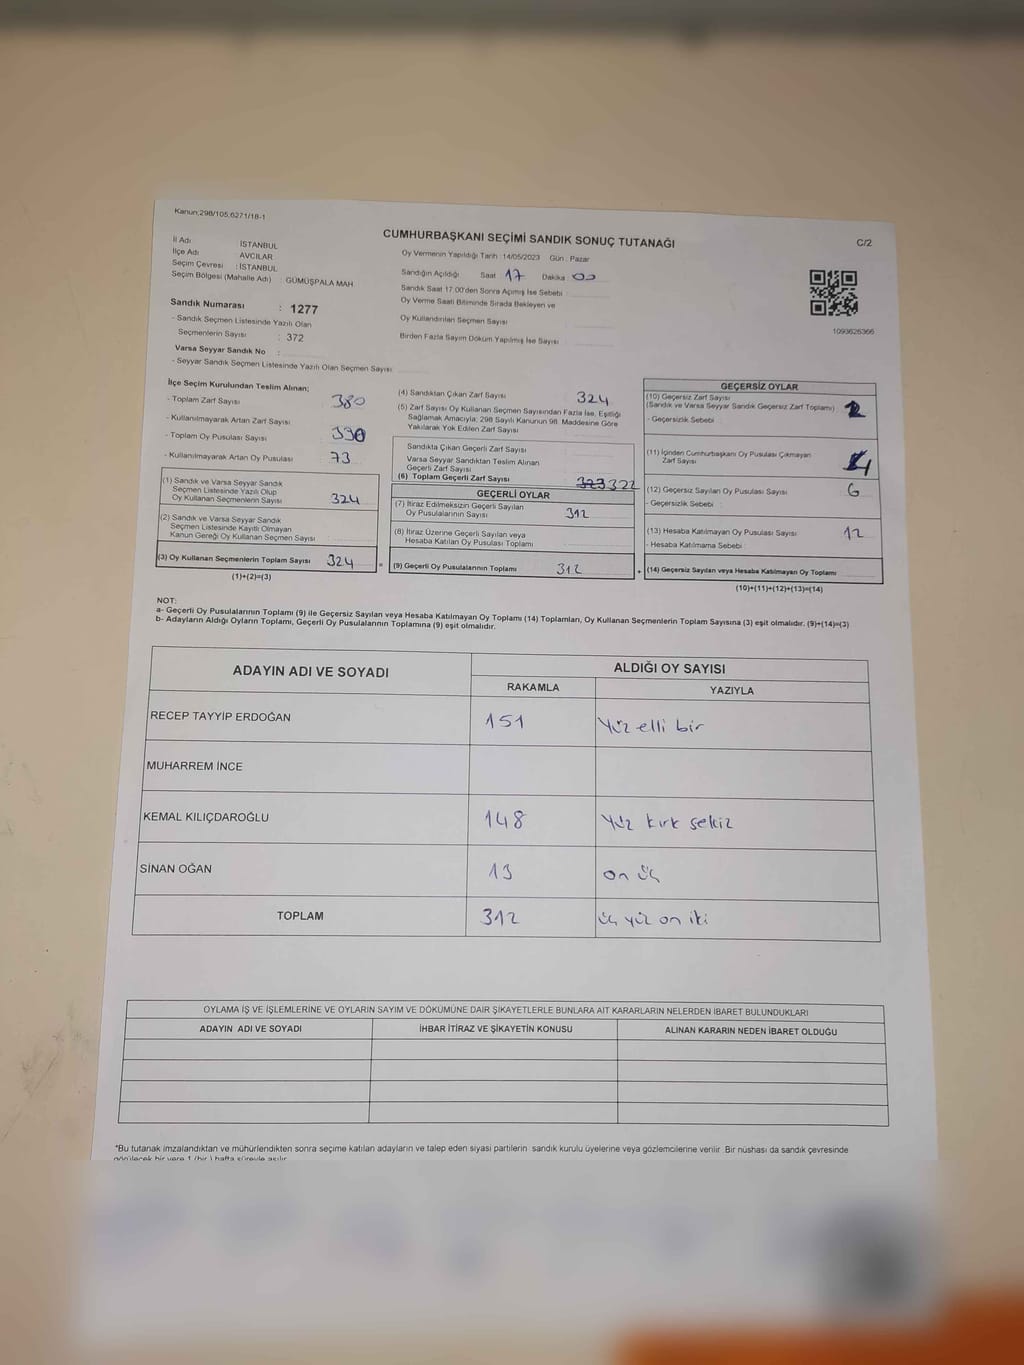 Kanun;298/105,6271/18-1
CUMHURBAŞKANI SEÇİMİ SANDIK SONUÇ TUTANAĞI
C/2
İl Adı : İSTANBUL
İlçe Adı : AVCILAR
Seçim Çevresi : İSTANBUL
Seçim Bölgesi (Mahalle Adı) : GÜMÜŞPALA MAH
Sandık Numarası : 1277
- Sandık Seçmen Listesinde Yazılı Olan
Seçmenlerin Sayısı : 372
Varsa Seyyar Sandık No :
- Seyyar Sandık Seçmen Listesinde Yazılı Olan Seçmen Sayısı
Oy Vermenin Yapıldığı Tarih : 14/05/2023 Gün : Pazar
Sandığın Açıldığı Saat 17 Dakika 00
Sandık Saat 17.00'den Sonra Açılmış İse Sebebi
Oy Verme Saati Bitiminde Sırada Bekleyen ve
Oy Kullandırılan Seçmen Sayısı
Birden Fazla Sayım Döküm Yapılmış İse Sayısı
1093626366
İlçe Seçim Kurulundan Teslim Alınan;
- Toplam Zarf Sayısı 380
- Kullanılmayarak Artan Zarf Sayısı
- Toplam Oy Pusulası Sayısı
- Kullanılmayarak Artan Oy Pusulası 73
(1) Sandık ve Varsa Seyyar Sandık
Seçmen Listesinde Yazılı Olup
Oy Kullanan Seçmenlerin Sayısı 324
(2) Sandık ve Varsa Seyyar Sandık
Seçmen Listesinde Kayıtlı Olmayan
Kanun Gereği Oy Kullanan Seçmen Sayısı
(3) Oy Kullanan Seçmenlerin Toplam Sayısı 324
(1)+(2)=(3)
=
(4) Sandıktan Çıkan Zarf Sayısı 324
(5) Zarf Sayısı Oy Kullanan Seçmen Sayısından Fazla İse, Eşitliği
Sağlamak Amacıyla; 298 Sayılı Kanunun 98. Maddesine Göre
Yakılarak Yok Edilen Zarf Sayısı
Sandıkta Çıkan Geçerli Zarf Sayısı
Varsa Seyyar Sandıktan Teslim Alınan
Geçerli Zarf Sayısı
(6) Toplam Geçerli Zarf Sayısı 323 322
GEÇERLİ OYLAR
(7) İtiraz Edilmeksizin Geçerli Sayılan
Oy Pusulalarının Sayısı 312
(8) İtiraz Üzerine Geçerli Sayılan veya
Hesaba Katılan Oy Pusulası Toplamı
(9) Geçerli Oy Pusulalarının Toplamı 312
+
GEÇERSİZ OYLAR
(10) Geçersiz Zarf Sayısı
(Sandık ve Varsa Seyyar Sandık Geçersiz Zarf Toplamı) 2
- Geçersizlik Sebebi
(11) İçinden Cumhurbaşkanı Oy Pusulası Çıkmayan
Zarf Sayısı 4
(12) Geçersiz Sayılan Oy Pusulası Sayısı 6
- Geçersizlik Sebebi :
(13) Hesaba Katılmayan Oy Pusulası Sayısı 12
- Hesaba Katılmama Sebebi :
(14) Geçersiz Sayılan veya Hesaba Katılmayan Oy Toplamı
(10)+(11)+(12)+(13)=(14)
NOT:
a- Geçerli Oy Pusulalarının Toplamı (9) ile Geçersiz Sayılan veya Hesaba Katılmayan Oy Toplamı (14) Toplamları, Oy Kullanan Seçmenlerin Toplam Sayısına (3) eşit olmalıdır. (9)+(14)=(3)
b- Adayların Aldığı Oyların Toplamı, Geçerli Oy Pusulalarının Toplamına (9) eşit olmalıdır.
ADAYIN ADI VE SOYADI
ALDIĞI OY SAYISI
RAKAMLA YAZIYLA
RECEP TAYYİP ERDOĞAN 151 Yüz elli bir
MUHARREM İNCE
KEMAL KILIÇDAROĞLU 148 Yüz kırk sekiz
SİNAN OĞAN 13 on üç
TOPLAM 312 üç yüz on iki
OYLAMA İŞ VE İŞLEMLERİNE VE OYLARIN SAYIM VE DÖKÜMÜNE DAİR ŞİKAYETLERLE BUNLARA AİT KARARLARIN NELERDEN İBARET BULUNDUKLARI
ADAYIN ADI VE SOYADI İHBAR İTİRAZ VE ŞİKAYETİN KONUSU ALINAN KARARIN NEDEN İBARET OLDUĞU
*Bu tutanak imzalandıktan ve mühürlendikten sonra seçime katılan adayların ve talep eden siyasi partilerin sandık kurulu üyelerine veya gözlemcilerine verilir. Bir nüshası da sandık çevresinde
görülecek bir yere 1 (bir) hafta süreyle asılır.